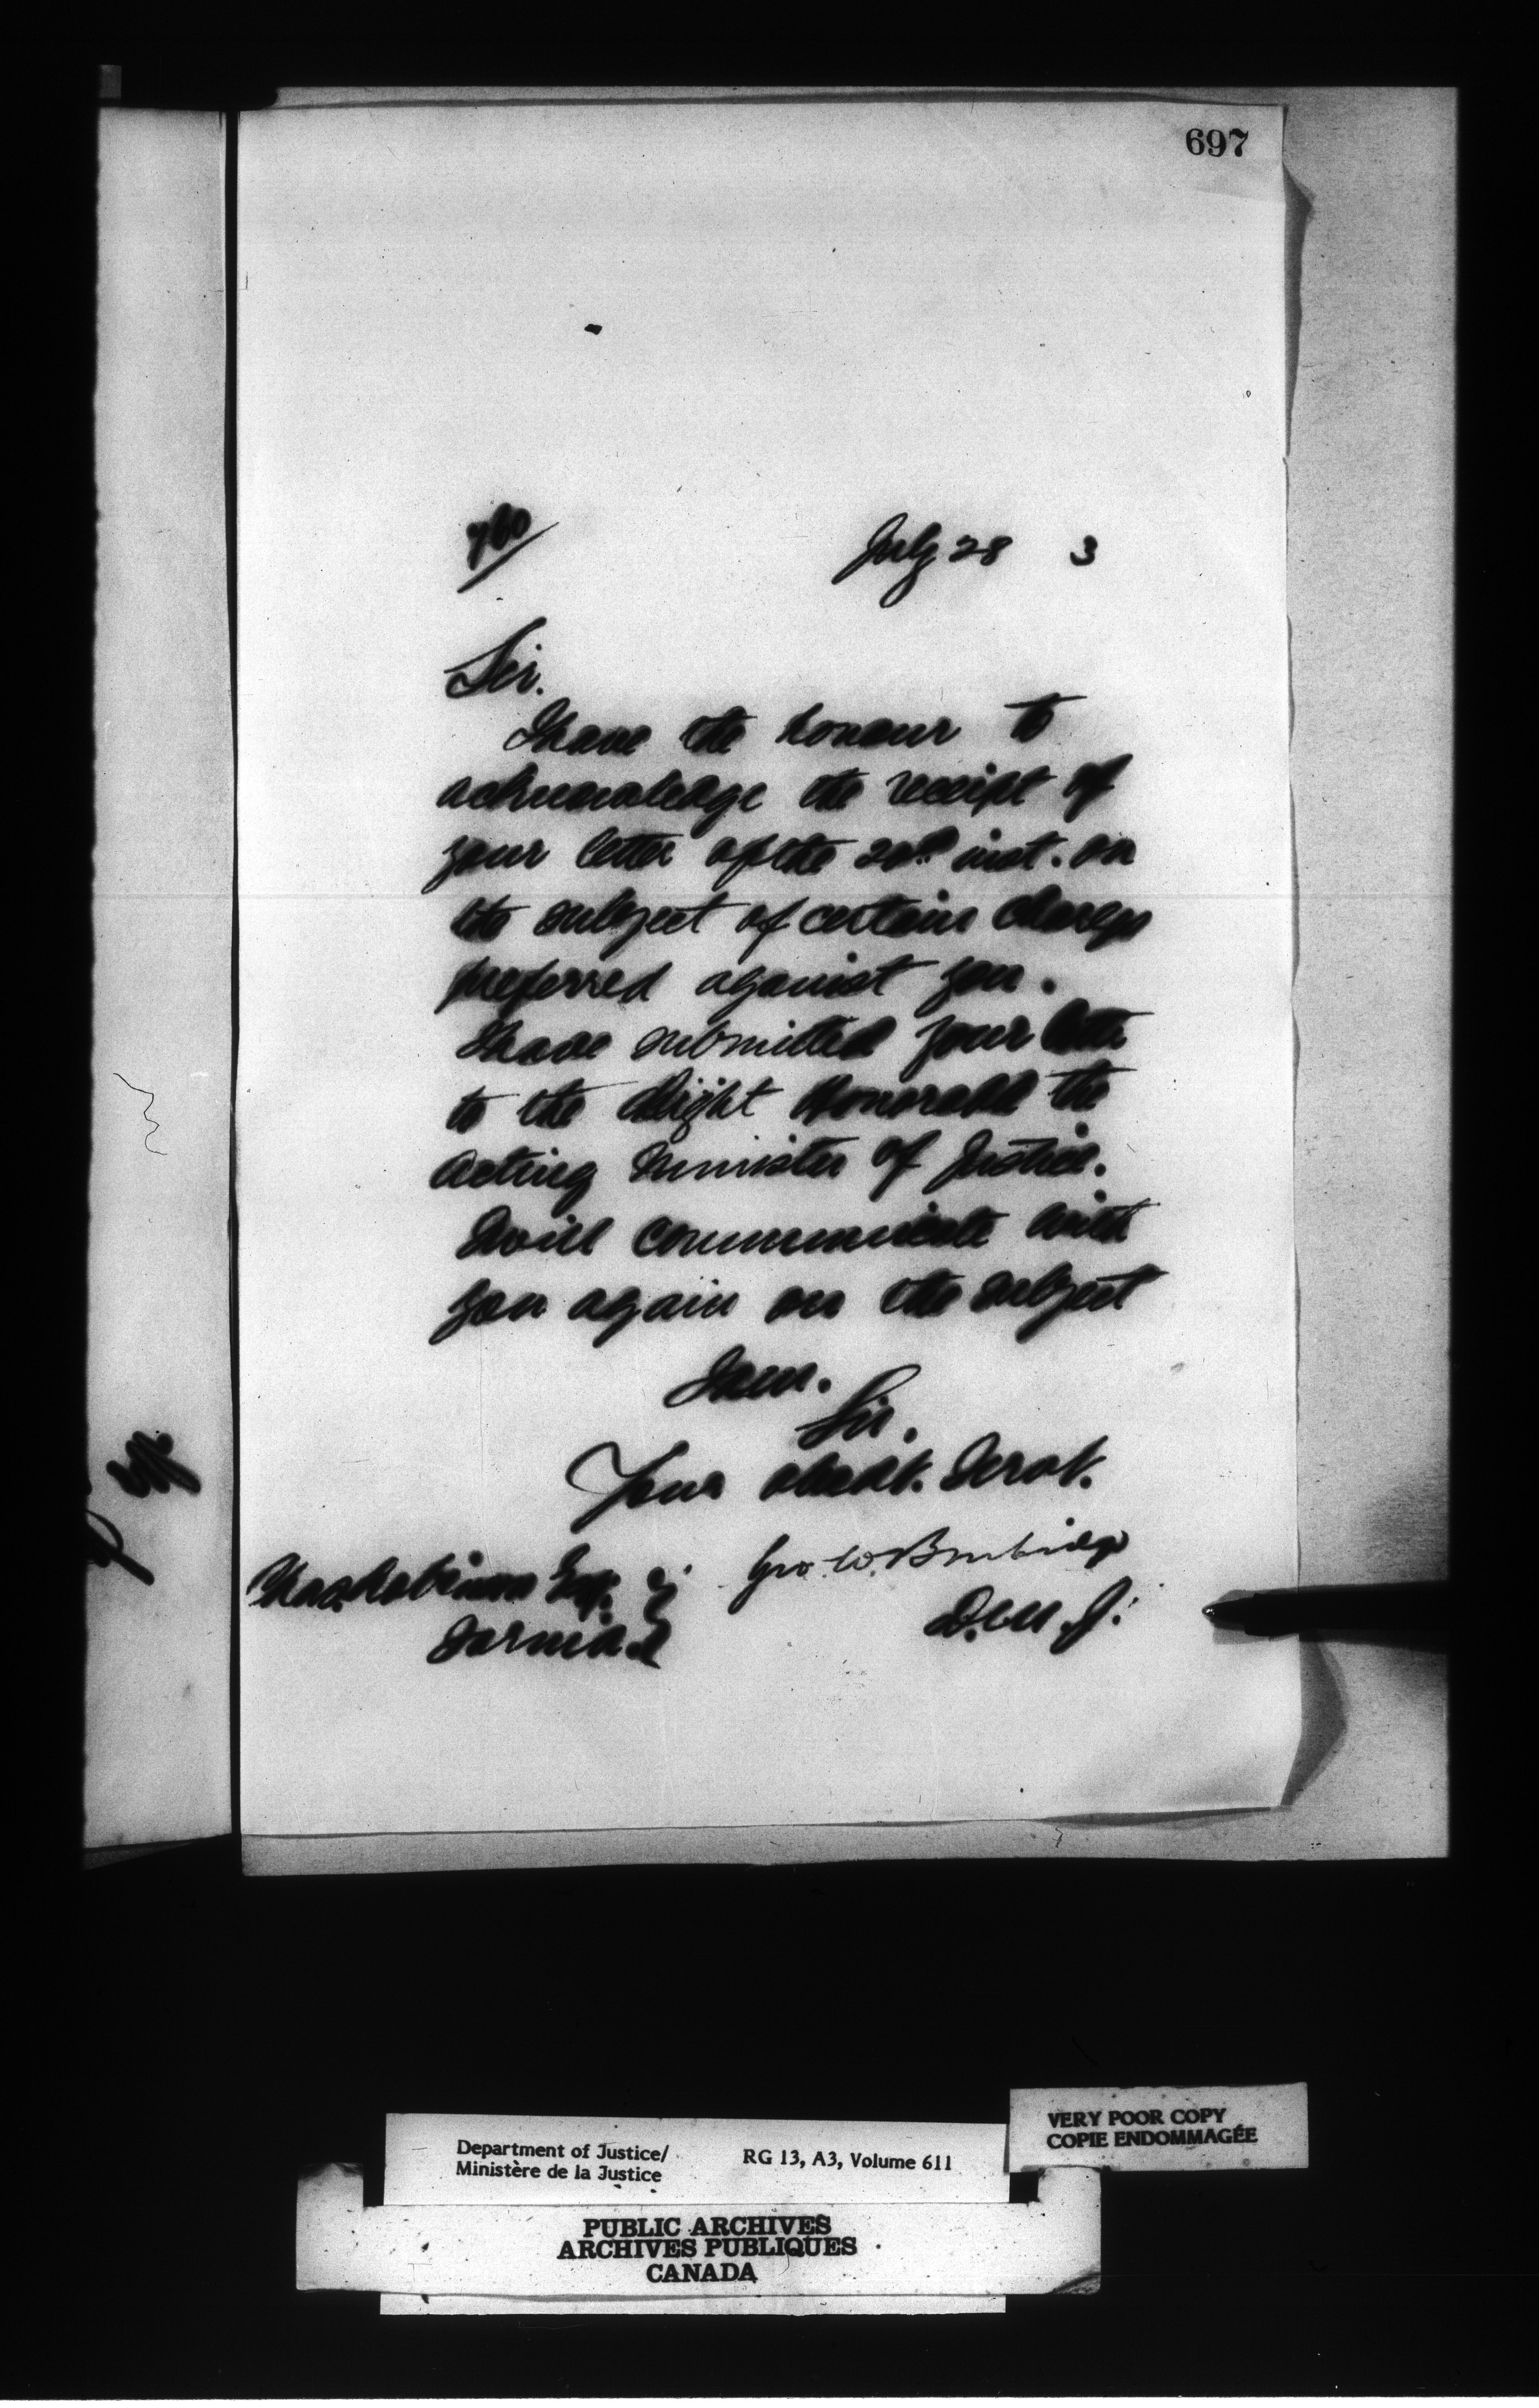 697
760
July 28 3
Sir.
I have the honour to
acknowledge the receipt of
your letter of the inst. on
the subject of certain charges
preferred against you.
I have submitted your letter
to the Right Honorable the
Acting Minister of Justice.
I will communicate with
you again on the subject
I am.
Sir,
Your obedt. Servt.
Geo. W. Burbidge
D.M.J.
Robinson Esq.
Sarnia.
Department of Justice/
Ministère de la Justice
RG 13, A3, Volume 611
VERY POOR COPY
COPIE ENDOMMAGÉE
PUBLIC ARCHIVES
ARCHIVES PUBLIQUES
CANADA